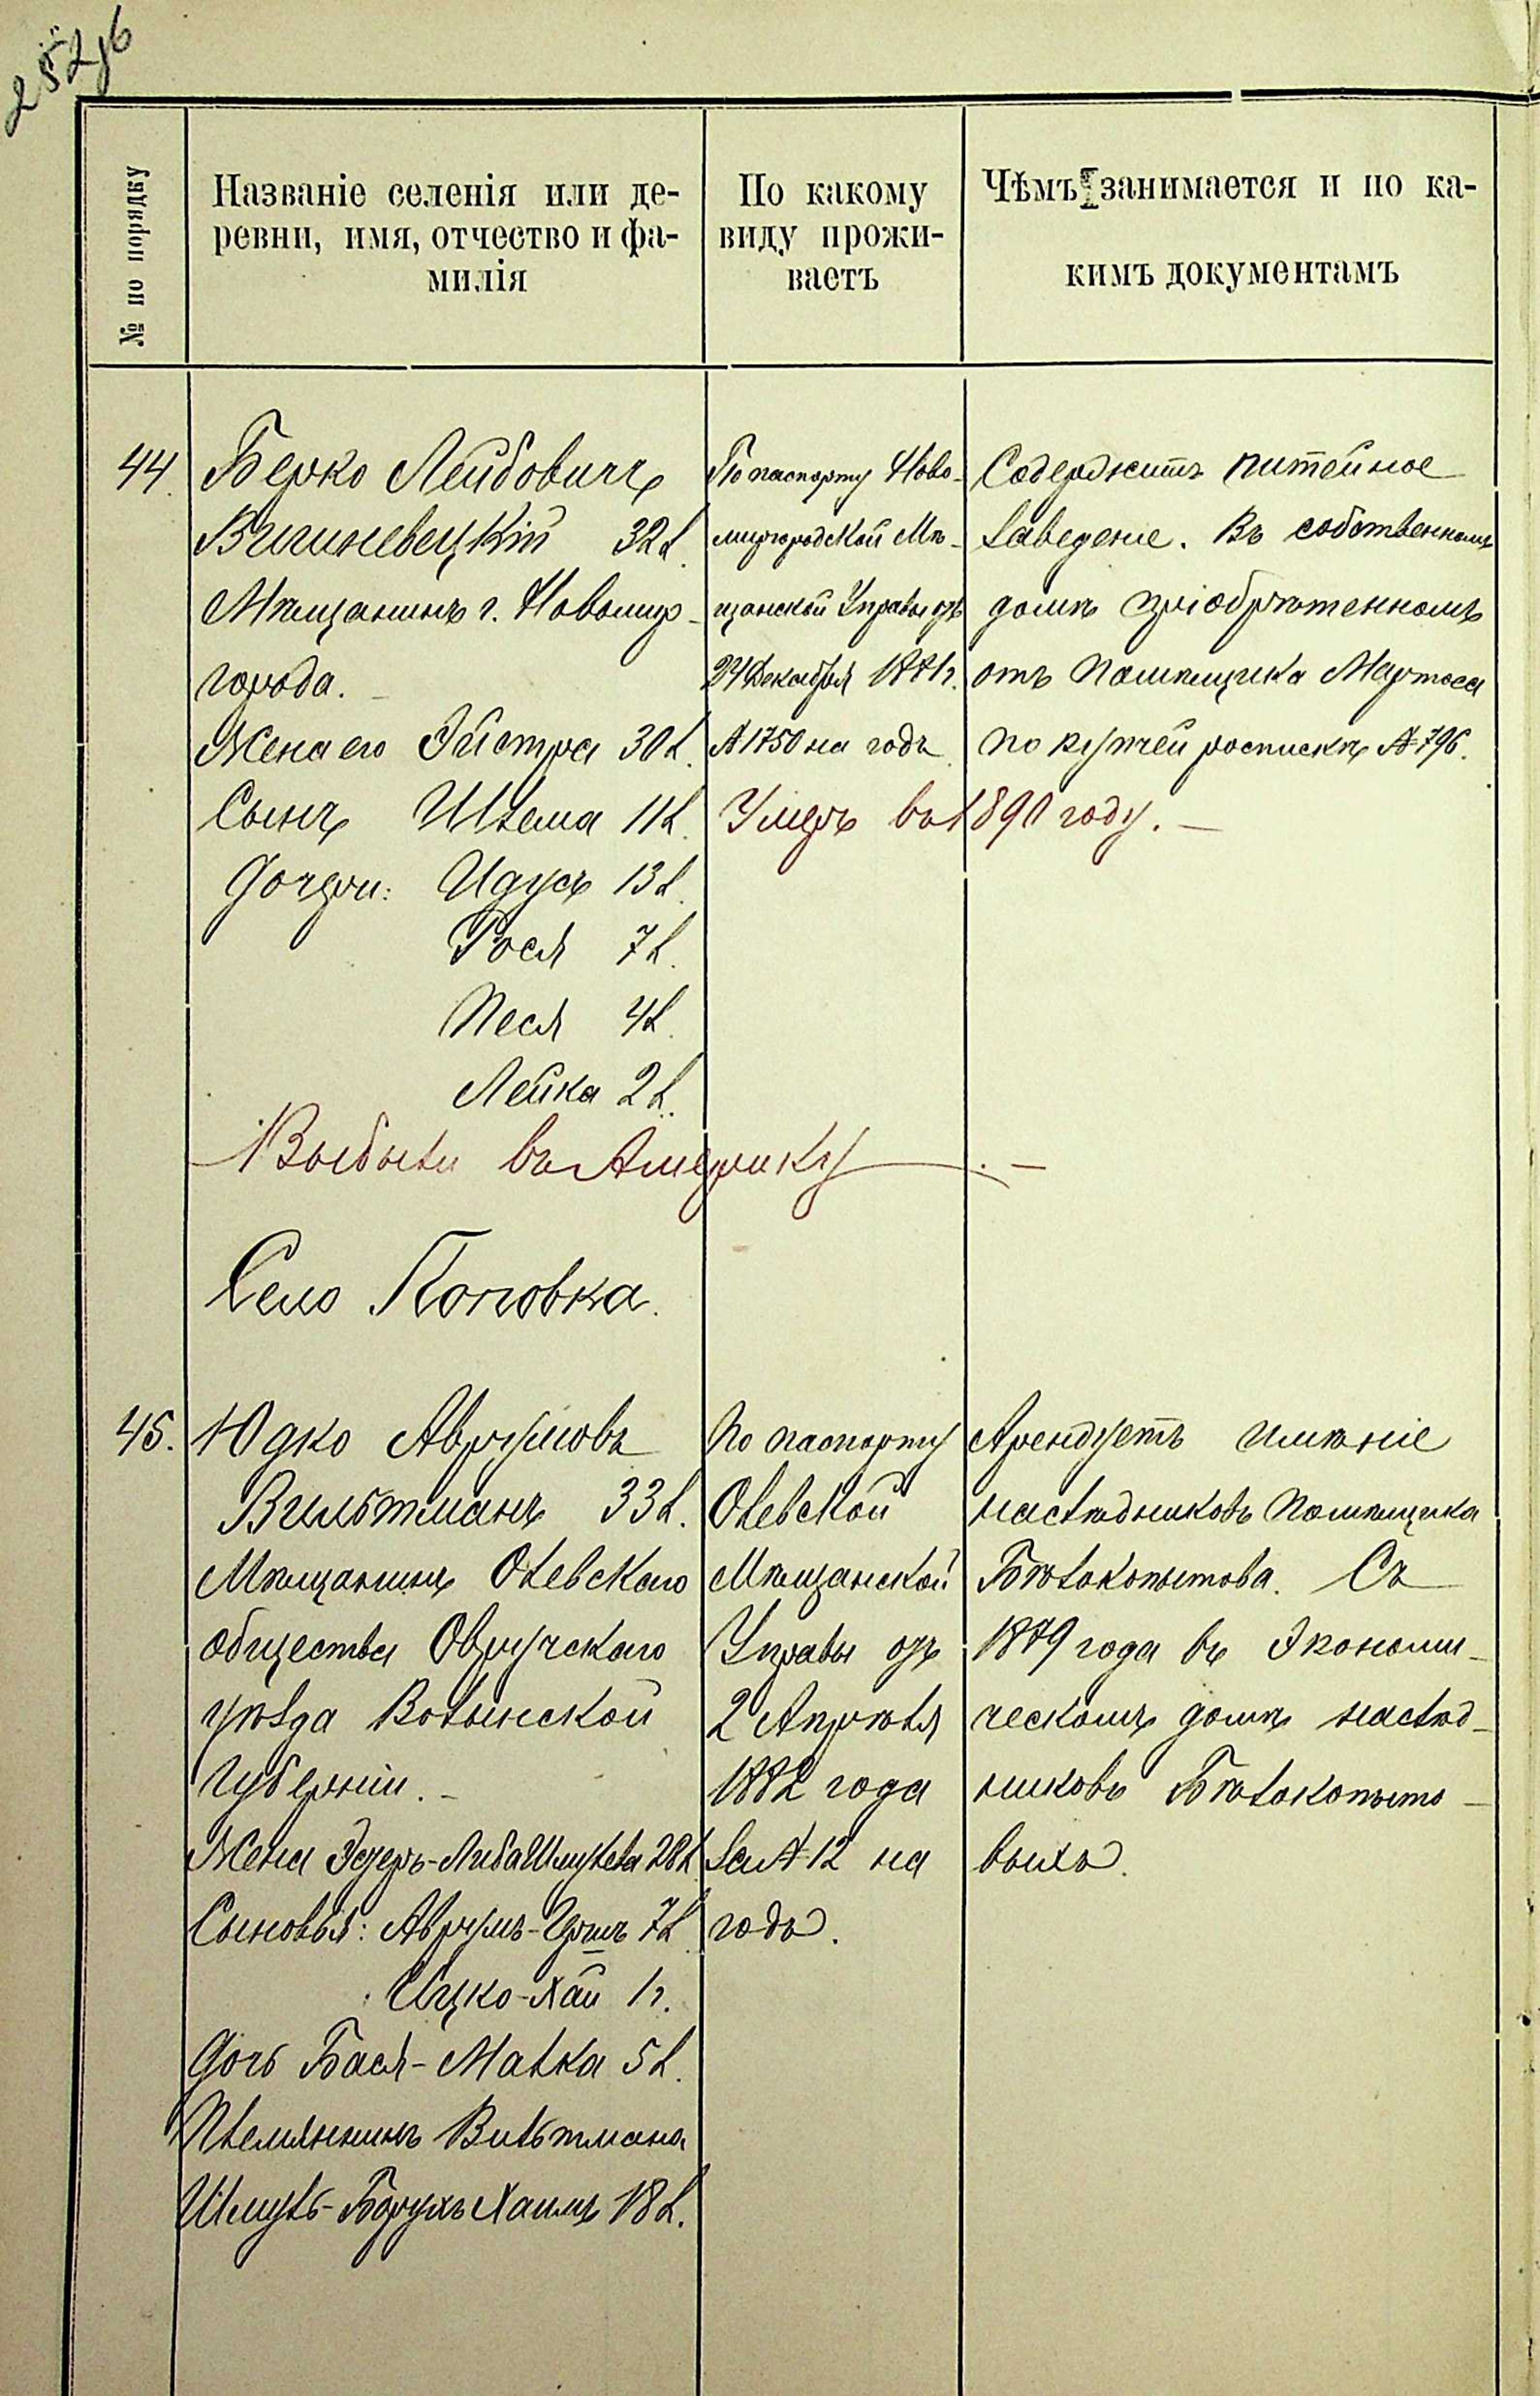 252об
№ по порядку
Названіе селенія или де-
ревни, имя, отчество и фа-
милія
По какому
виду прожи-
ваетъ
Чѣмъ занимается и по ка-
кимъ документамъ
44.
Берко Лейбовичъ
Вишневецкій 32 л.
Мѣщанинъ г. Новомир-
города.
Жена его Эйстра 30 л.
Сынъ Шлема 11 л.
Дочери: Идусъ 13 л.
Рося 7 л.
Песя 4 л.
Лейка 2 л.
Выбыли въ Америку
По паспорту Ново-
миргородской Мѣ-
щанской Управы отъ
24 Декабря 1881 г.
№ 1750 на годъ.
Умеръ въ 1890 году.
Содержитъ питейное
заведеніе. Въ собственномъ
домѣ пріобрѣтенномъ
отъ Помѣщика Мартоса
по купчей роспискѣ № 796.
Село Поповка.
45.
Юдко Аврумовъ
Вильтманъ 33 л.
Мѣщанинъ Олевскаго
общества Овручскаго
уѣзда Волынской
Губерніи.
Жена Эстеръ-Либа Шмулева 28 л.
Сыновья: Аврумъ-Гершъ 7 л.
Ицко-Хай 1 г.
Дочь Бася-Малка 5 л.
Племянникъ Вильтмана
Шмуль-Борухъ Хаимъ 18 л.
По паспорту
Олевской
Мѣщанской
Управы отъ
2 Апрѣля
1882 года
за № 12 на
годъ.
Арендуетъ имѣніе
наслѣдниковъ Помѣщика
Бѣлокопытова. Съ
1879 года въ Экономи-
ческомъ домѣ наслѣд-
никовъ Бѣлокопыто-
выхъ.